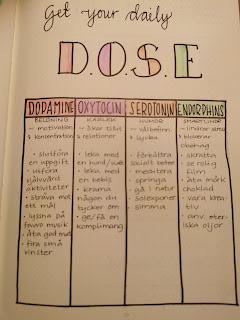 Get your daily
D.O.S.E
DODAMINE
BELÖNING
~ motivation
& koncentration
• slutföra
en uppgift
• utföra
självvård
aktiviteter
• sträva mot
ett mål
• lyssna på
favvo musik
• äta god mat
• fira små
vinster
OXYTOCIN
KÄRLEK
~ ökar tillit
& relationer
• leka med
en hund/katt
• leka med
en bebis
• krama
någon du
tycker om
• ge/få en
komplimang
SEROTONIN
HUMÖR
~ välbefinn.
& lycka
• förbättra
socialt
• meditera
• springa
• gå i natur
• solexponer
• simma
ENDORPHINS
~ lindrar
& blockerar
obehag
• skratta
• se rolig
film
• äta mörk
choklad
• vara krea-
tiv
• anv. eter-
iska oljor